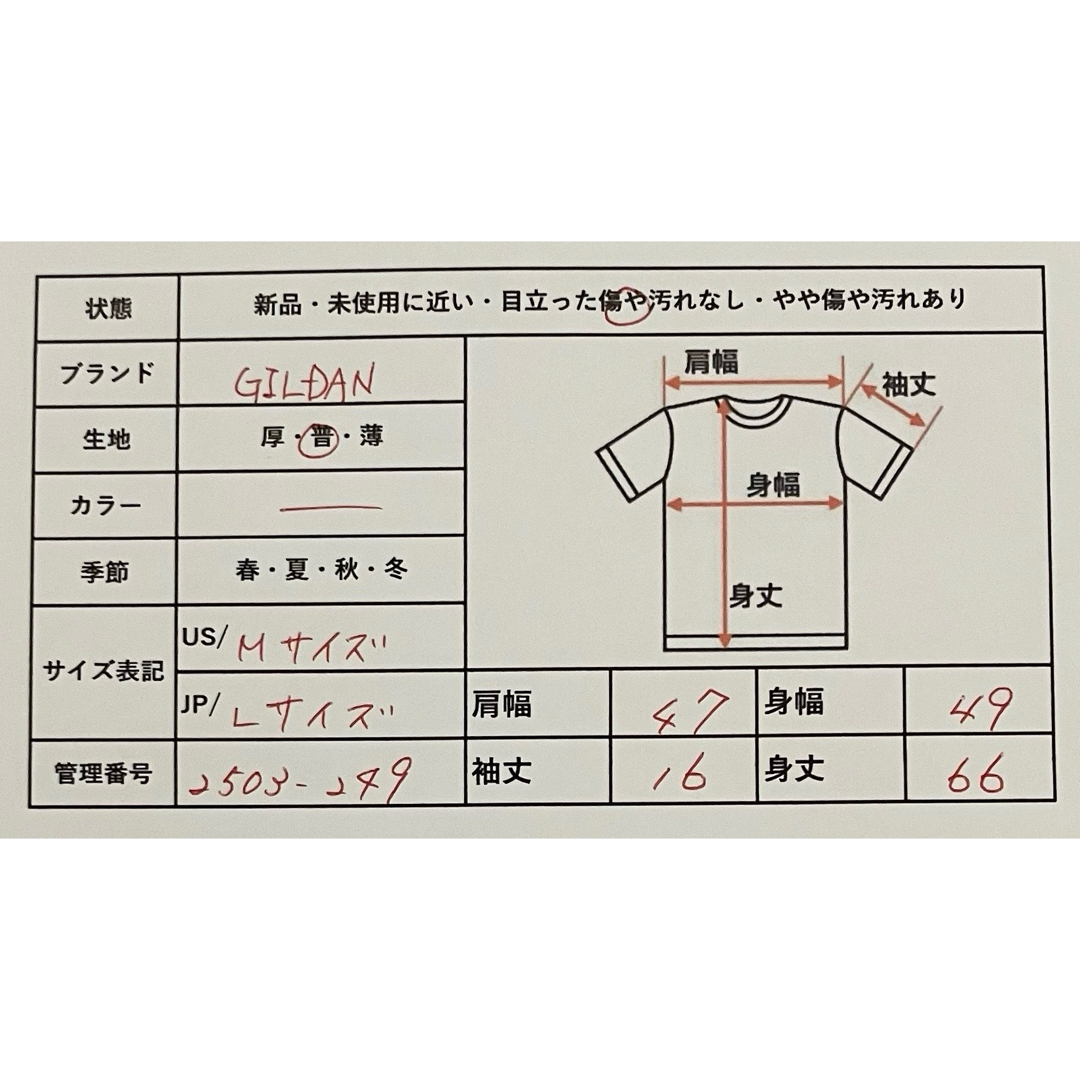 状態 新品・未使用に近い・目立った傷や汚れなし・やや傷や汚れあり
ブランド GILDAN
生地 厚・普・薄
カラー
季節 春・夏・秋・冬
サイズ表記
US/ Mサイズ
JP/ Lサイズ
管理番号 2503-249
肩幅
袖丈
身幅
身丈
肩幅 47 身幅 49
袖丈 16 身丈 66